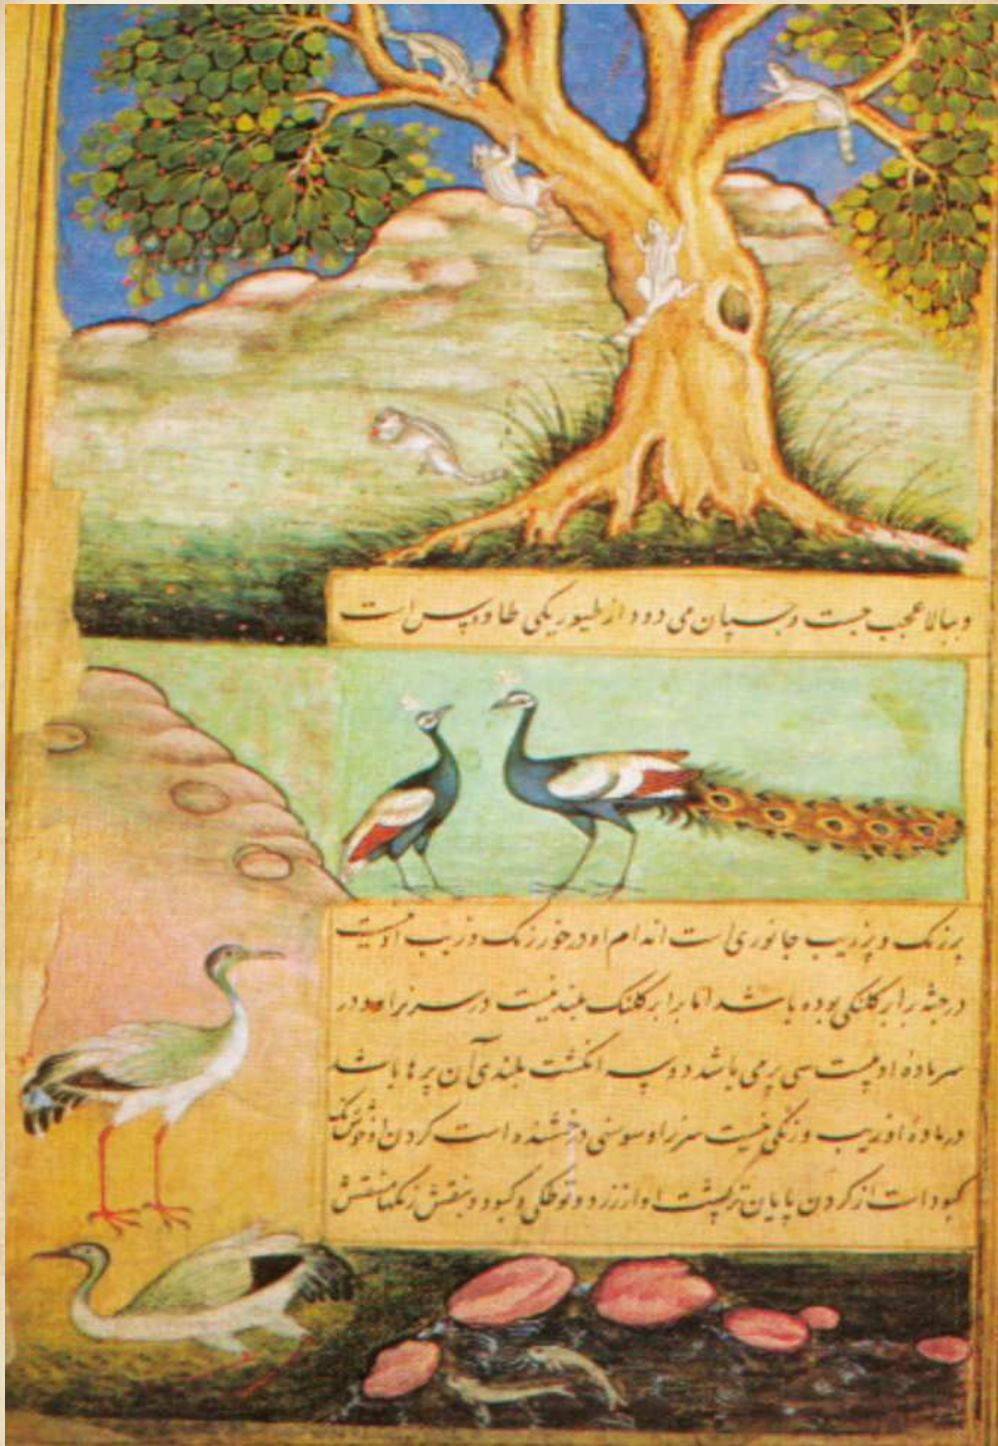 و ببالا عجب جست و جسپان می دود از طیور یکی طاووس است
پر رنک و پر زیب جانوری است اندام او در خور رنک و زیب او نیست
در جثه برابر کلنکی بوده باشد اما برابر کلنک بلند نیست در سر نر او و در
سر ماده او بیست سی پر می باشد دو سه انکشت بلندی آن پر ها باشد
در ماده او زیب و رنکی نیست سر نر او سوسنی درخشنده است کردن او خوش رنک
کبود است از کردن پایان تر پشت او از زرد و کبود و بنفش رنکها منقش